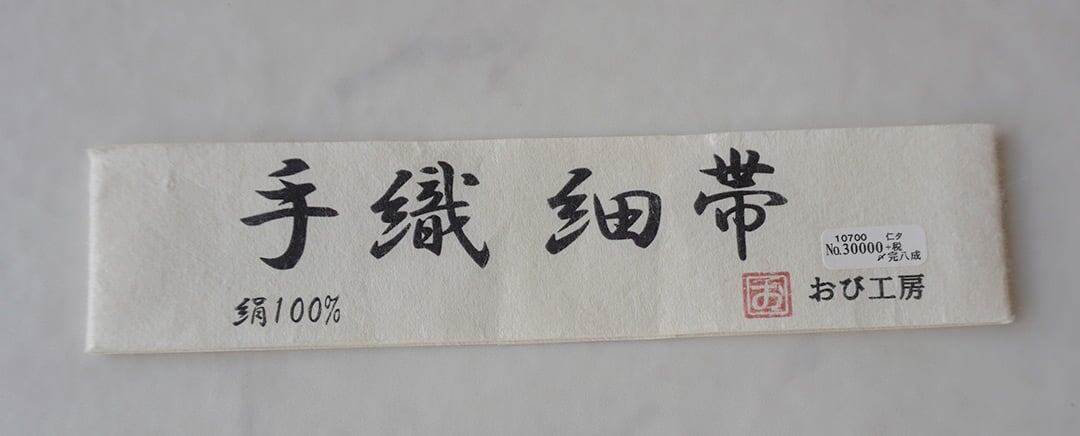 手織 細帯
絹100%
お
おび工房
10700 仁タ
No.30000+税
〆完八成